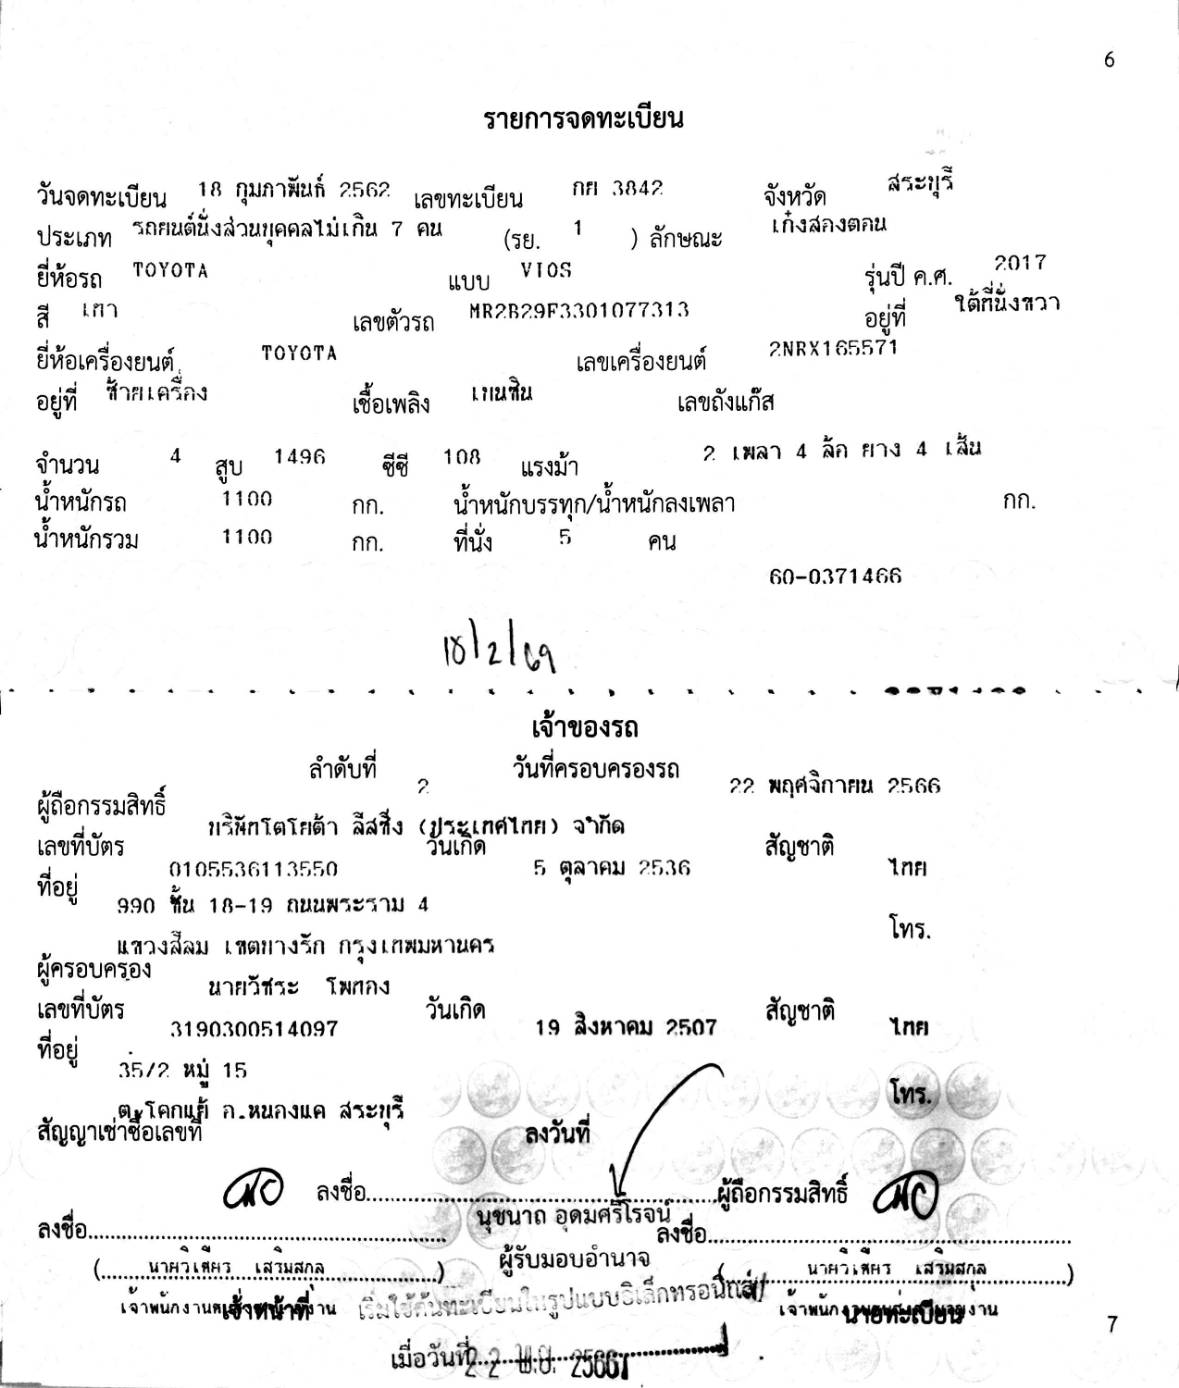 6
รายการจดทะเบียน
วันจดทะเบียน 18 กุมภาพันธ์ 2562 เลขทะเบียน กย 3842 จังหวัด สระบุรี
ประเภท รถยนต์นั่งส่วนบุคคลไม่เกิน 7 คน (รย. 1 ) ลักษณะ เก๋งสองตอน
ยี่ห้อรถ TOYOTA แบบ VIOS รุ่นปี ค.ศ. 2017
สี เทา เลขตัวรถ MR2B29F3301077313 อยู่ที่ ใต้ที่นั่งขวา
ยี่ห้อเครื่องยนต์ TOYOTA เลขเครื่องยนต์ 2NRX165571
อยู่ที่ ซ้ายเครื่อง เชื้อเพลิง เบนซิน เลขถังแก๊ส
จำนวน 4 สูบ 1496 ซีซี 108 แรงม้า 2 เพลา 4 ล้อ ยาง 4 เส้น
น้ำหนักรถ 1100 กก. น้ำหนักบรรทุก/น้ำหนักลงเพลา กก.
น้ำหนักรวม 1100 กก. ที่นั่ง 5 คน
60-0371466
18/2/69
เจ้าของรถ
ลำดับที่ 2 วันที่ครอบครองรถ 22 พฤศจิกายน 2566
ผู้ถือกรรมสิทธิ์ บริษัทโตโยต้า ลีสซิ่ง (ประเทศไทย) จำกัด
เลขที่บัตร 0105536113550 วันเกิด 5 ตุลาคม 2536 สัญชาติ ไทย
ที่อยู่ 990 ชั้น 18-19 ถนนพระราม 4
แขวงสีลม เขตบางรัก กรุงเทพมหานคร โทร.
ผู้ครอบครอง นายวัชระ โพทอง
เลขที่บัตร 3190300514097 วันเกิด 19 สิงหาคม 2507 สัญชาติ ไทย
ที่อยู่ 35/2 หมู่ 15
ต.โคกแย้ อ.หนองแค สระบุรี โทร.
สัญญาเช่าซื้อเลขที่ ลงวันที่
ลงชื่อ ผู้ถือกรรมสิทธิ์
นุชนาถ อุดมศรีโรจน์
ลงชื่อ ลงชื่อ
ผู้รับมอบอำนาจ
(นายวิเชียร เสริมสกุล) (นายวิเชียร เสริมสกุล)
เจ้าหน้าที่ เริ่มใช้ต้นทะเบียนในรูปแบบอิเล็กทรอนิกส์ นายทะเบียน
7
เมื่อวันที่ 22 พ.ย. 2566